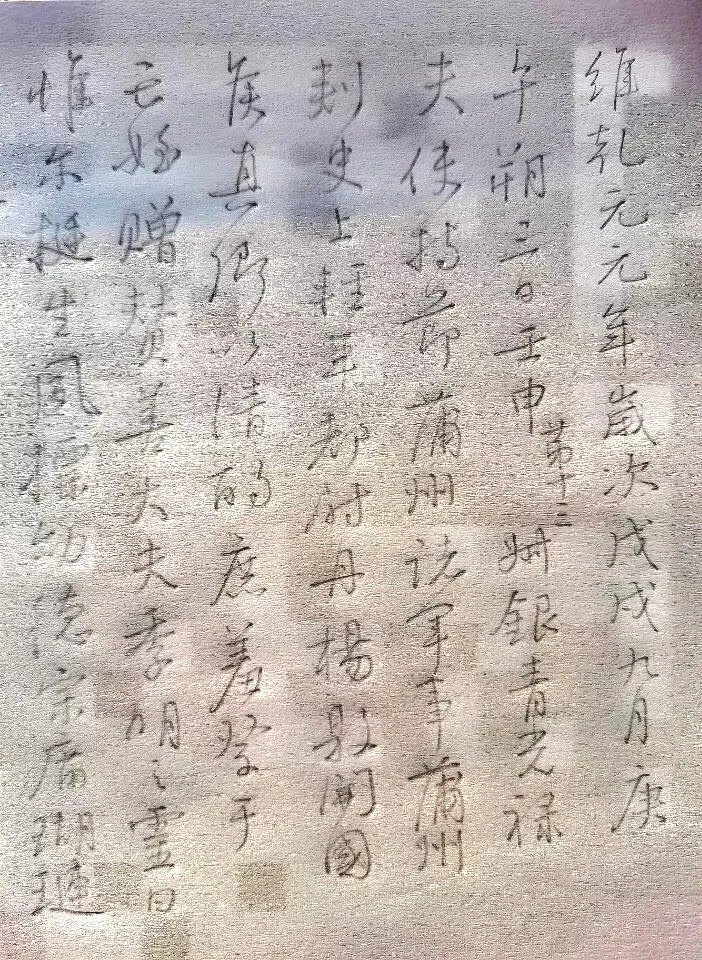 維乾元元年歲次戊戌九月庚
午朔三日壬申第十三銀青光祿
夫使持節蒲州諸軍事蒲州
刺史上輕車都尉丹楊縣開國
侯真卿以清酌庶羞祭于
亡姪贈贊善大夫季明之靈曰
惟尔挺生風標幼德宗廟瑚璉